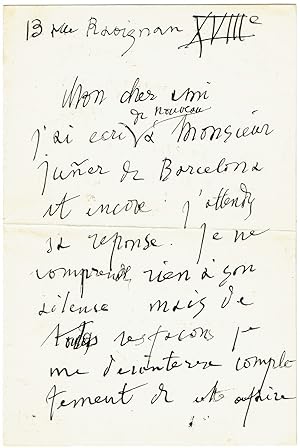 13 rue Ravignan XVIIIe
Mon cher ami
de nouveau
j'ai ecri a Monsieur
Juñer de Barcelona
et encore j'attends
sa reponse. je ne
comprends rien à son
silence mais de
toutes les façons je
me desinterese comple
tement de cette afaire